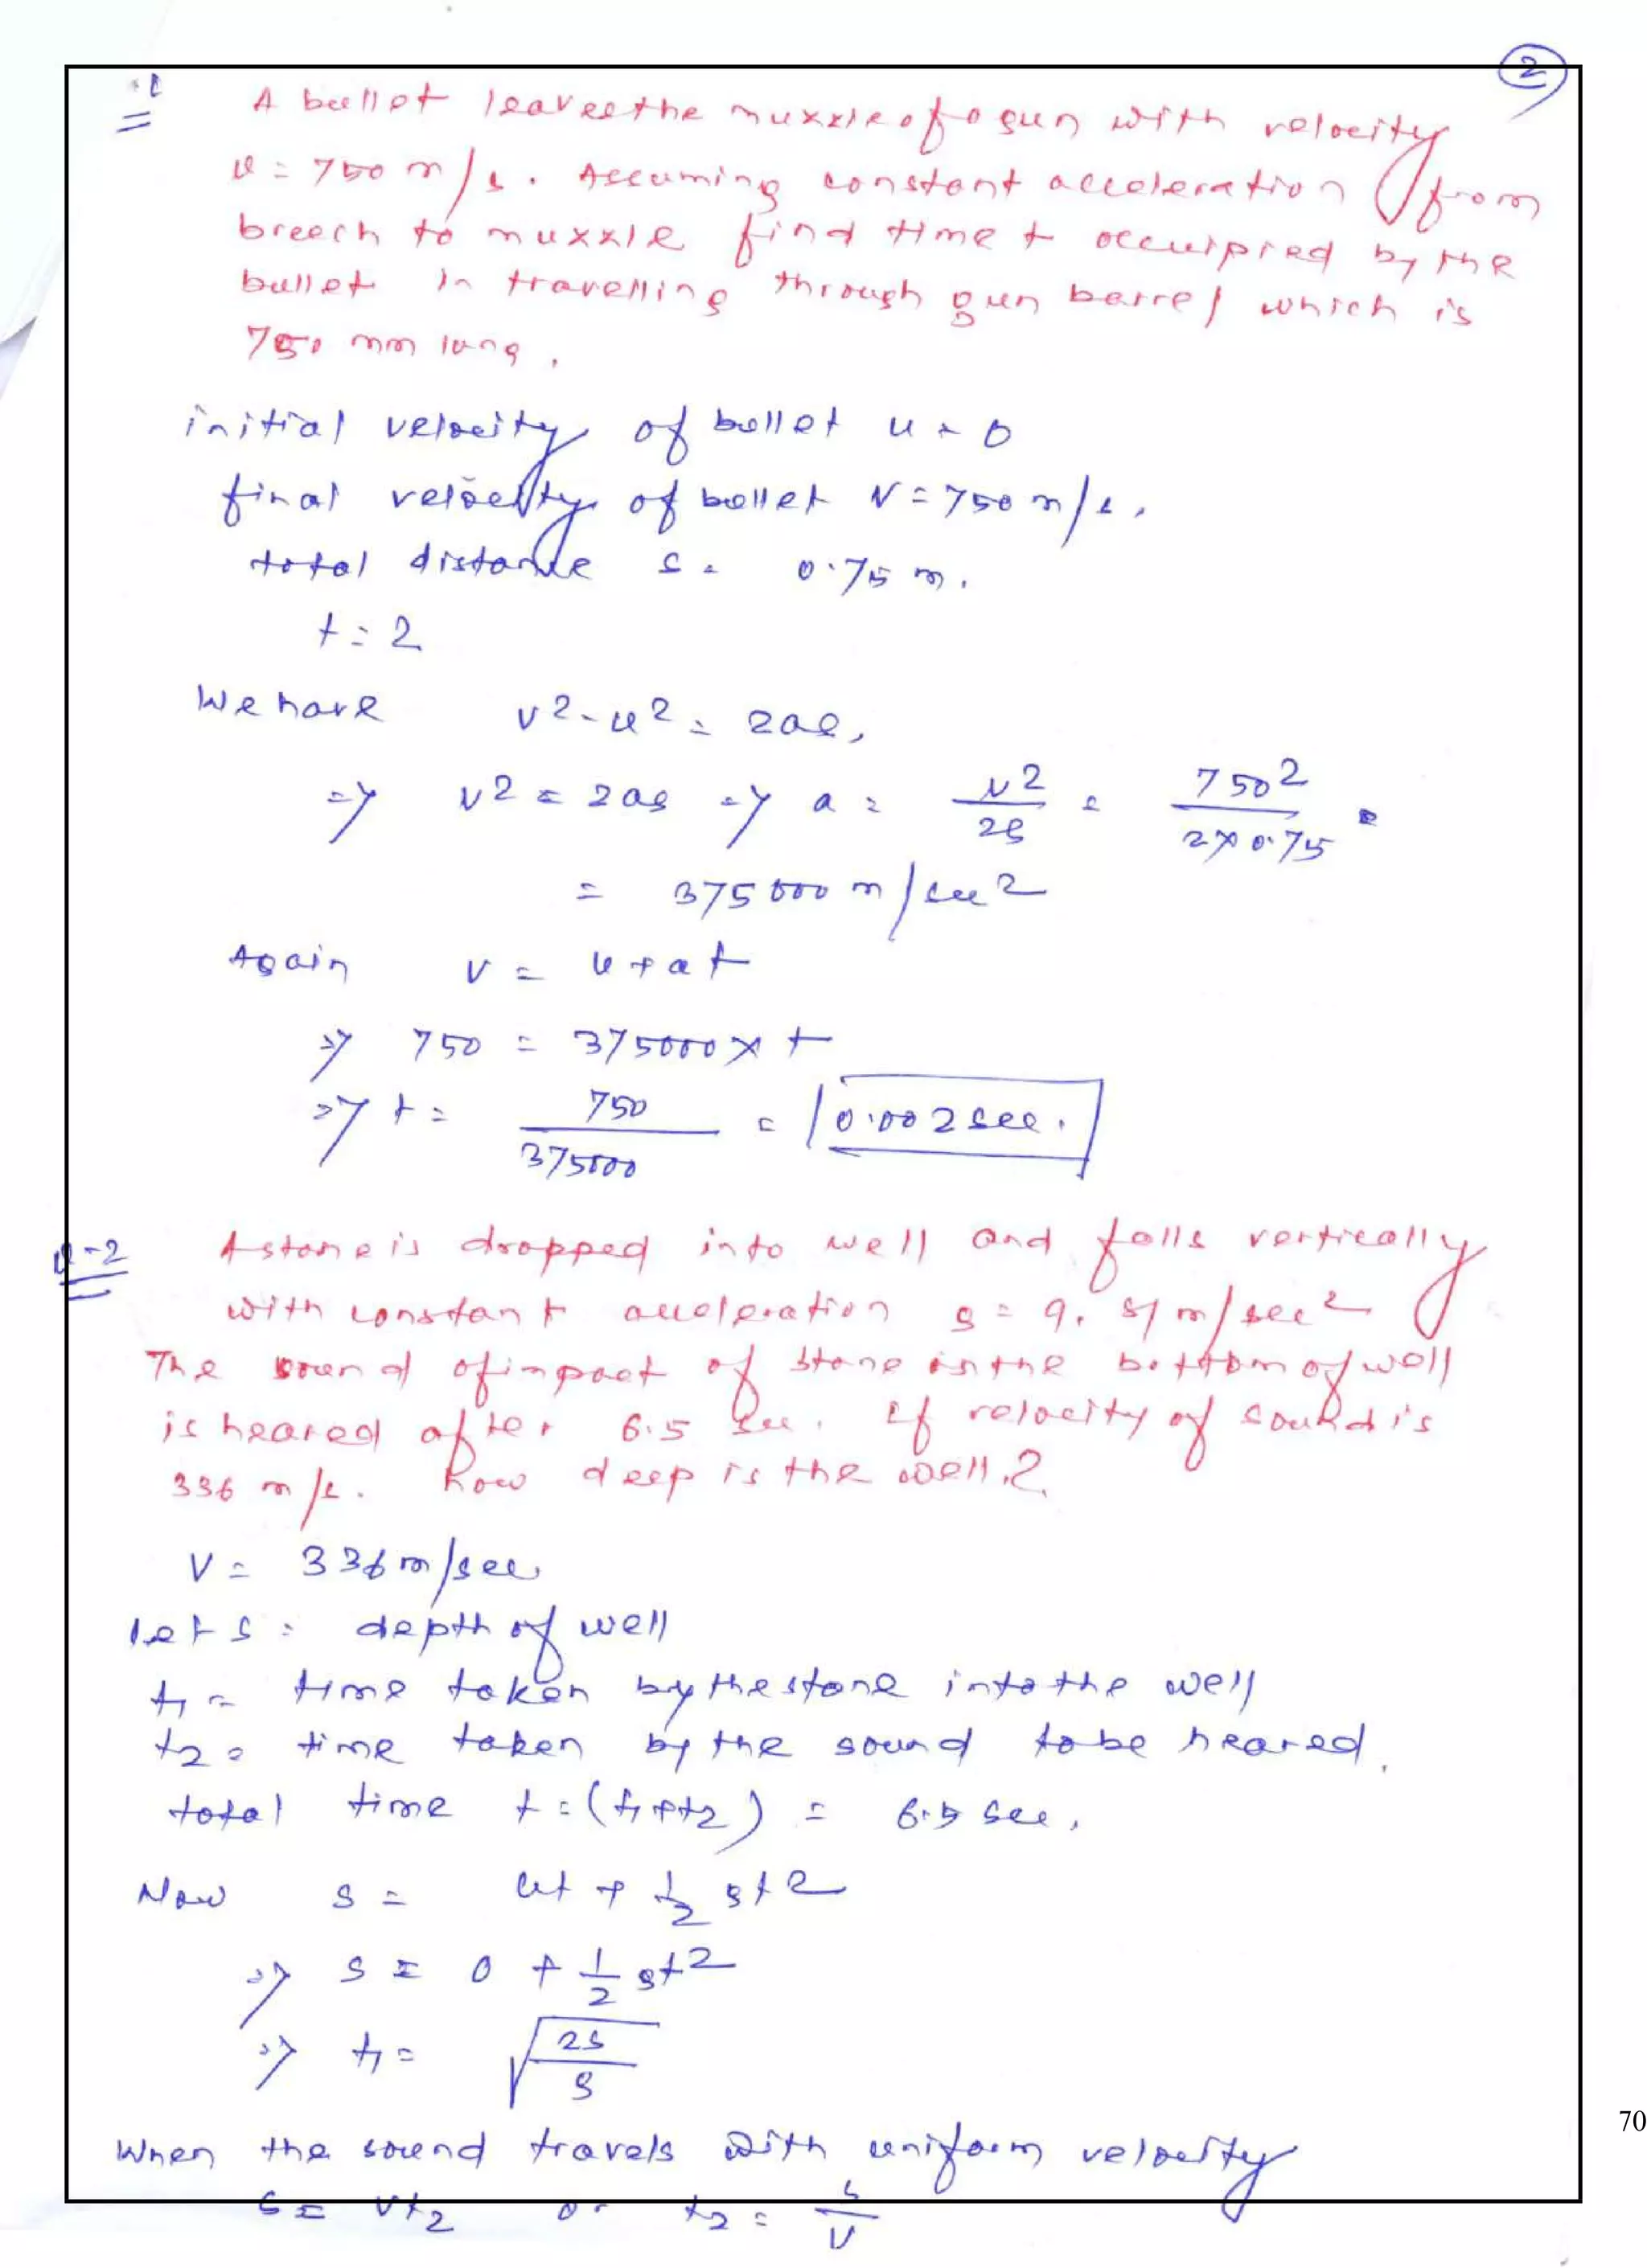 2
.1
A bullet leaves the muxxle of a gun with velocity
v = 750 m/s. Assuming constant acceleration from
breech to muxxle find time t occuipied by the
bullet in travelling through gun barrel which is
750 mm long.
initial velocity of bullet u = 0
final velocity of bullet v = 750 m/s.
total distance s = 0.75 m.
t = ?
We have v² - u² = 2as,
⇒ v² = 2as ⇒ a = v²/2s = 750²/2×0.75 =
= 375000 m/sec²
Again v = u + at
⇒ 750 = 375000 × t
⇒ t = 750/375000 = 0.002 sec.
Q-2 A stone is dropped into well and falls vertically
with constant acceleration g = 9.81 m/sec²
The sound of impact of stone in the bottom of well
is heared after 6.5 sec. If velocity of sound is
336 m/s. how deep is the well?
V = 336 m/sec.
let s = depth of well
t1 = time taken by the stone into the well
t2 = time taken by the sound to be heared.
total time t = (t1+t2) = 6.5 sec.
Now s = ut + 1/2 gt²
⇒ s = 0 + 1/2 gt²
⇒ t1 = √(2s/g)
When the sound travels with uniform velocity
s = vt2 or t2 = s/v
70